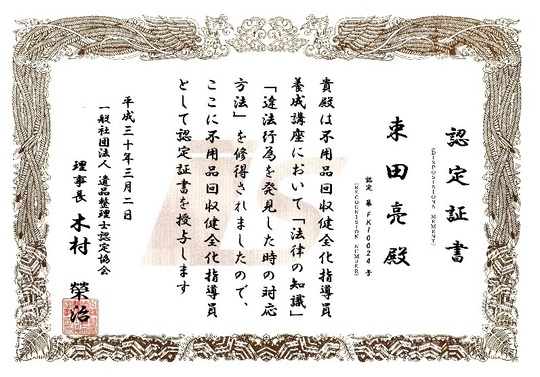 認定証書
(DISPOSISION MEMENT)
東田亮殿
認定 第 FK10024 号
(RECOGNISION NUMBER)
貴殿は不用品回収健全化指導員
養成講座において「法律の知識」
「違法行為を発見した時の対応
方法」を修得されましたので、
ここに不用品回収健全化指導員
として認定証書を授与します
平成三十年三月二日
一般社団法人 遺品整理士認定協会
理事長 木村 榮治